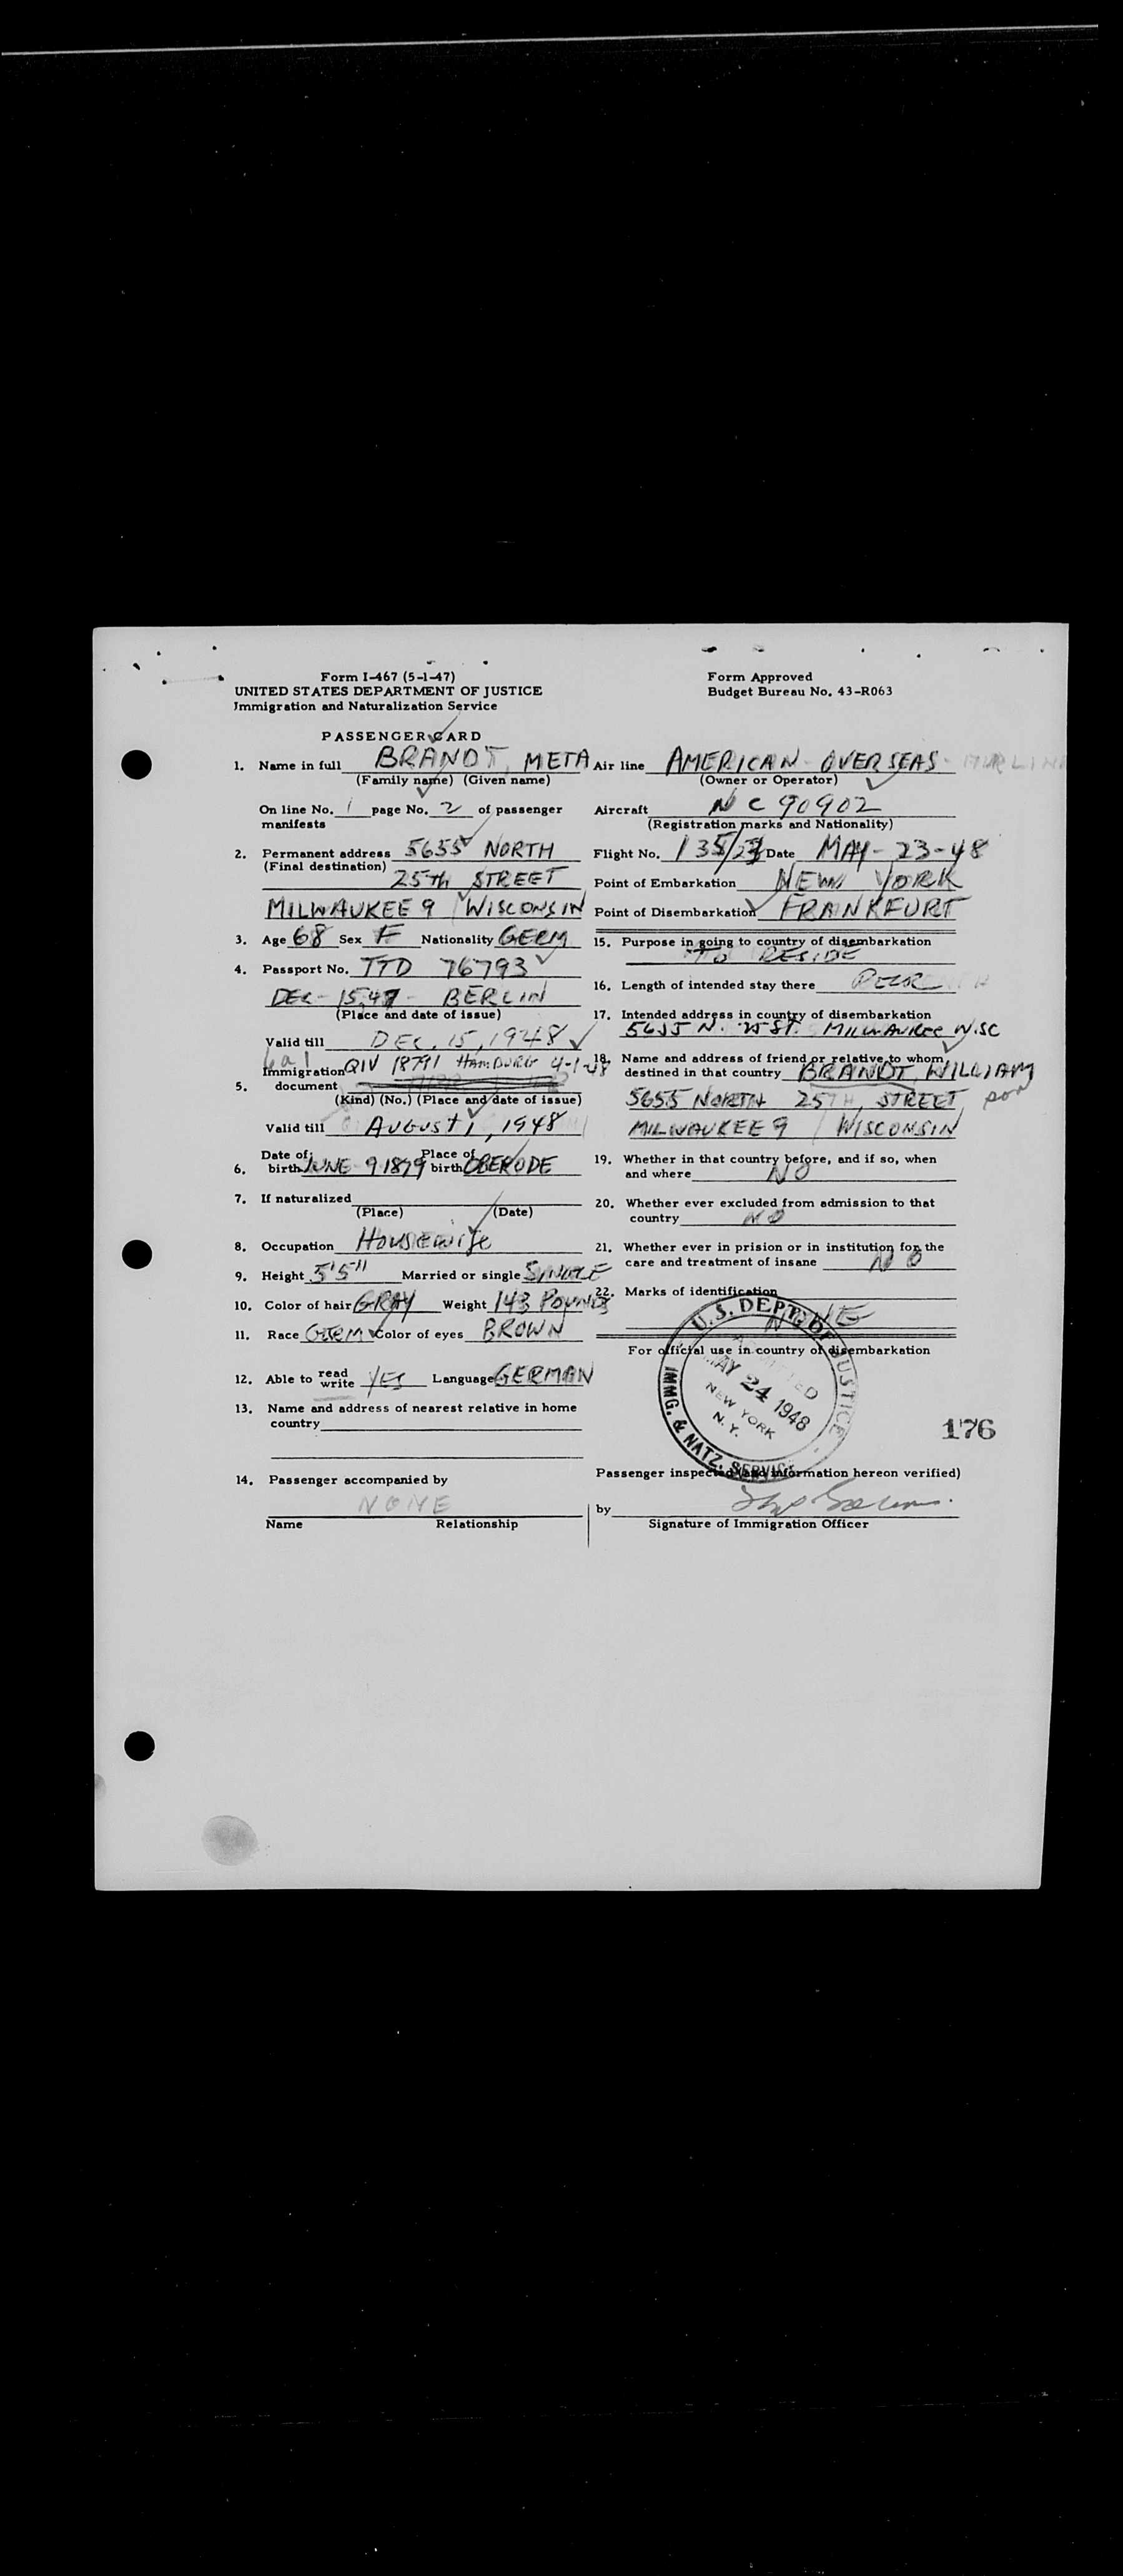 Form I-467 (5-1-47)
UNITED STATES DEPARTMENT OF JUSTICE
Immigration and Naturalization Service
Form Approved
Budget Bureau No. 43-R063
PASSENGER CARD
1. Name in full BRANDT, META
(Family name) (Given name)
On line No. 1 page No. 2 of passenger
manifests
2. Permanent address 5655 NORTH
(Final destination) 25TH STREET
MILWAUKEE 9 WISCONSIN
3. Age 68 Sex F Nationality GERM
4. Passport No. TTD 76793
DEC - 15, 47 - BERLIN
(Place and date of issue)
Valid till DEC. 15, 1948
6a1
Immigration QIV 18791 HAMBURG 4-1-48
5. document
(Kind) (No.) (Place and date of issue)
Valid till AUGUST 1, 1948
Date of Place of
6. birth JUNE 9 1879 birth OBERODE
7. If naturalized
(Place) (Date)
8. Occupation Housewife
9. Height 5'5" Married or single SINGLE
10. Color of hair GRAY Weight 143 POUNDS
11. Race GERM Color of eyes BROWN
12. Able to read write YES Language GERMAN
13. Name and address of nearest relative in home
country
14. Passenger accompanied by
NONE
Name Relationship
Air line AMERICAN - OVERSEAS - AIRLINE
(Owner or Operator)
Aircraft NC 90902
(Registration marks and Nationality)
Flight No. 135/23 Date MAY - 23 - 48
Point of Embarkation NEW YORK
Point of Disembarkation FRANKFURT
15. Purpose in going to country of disembarkation
TO RESIDE
16. Length of intended stay there
17. Intended address in country of disembarkation
5655 N. 25 ST. MILWAUKEE WISC
18. Name and address of friend or relative to whom
destined in that country BRANDT, WILLIAM
5655 NORTH 25TH, STREET, son
MILWAUKEE 9 WISCONSIN
19. Whether in that country before, and if so, when
and where NO
20. Whether ever excluded from admission to that
country NO
21. Whether ever in prision or in institution for the
care and treatment of insane NO
22. Marks of identification
NONE
For official use in country of disembarkation
U.S. DEPT. OF JUSTICE
ADMITTED
MAY 24 1948
NEW YORK
N.Y.
IMMG. & NATZ. SERVICE
176
Passenger inspected (and information hereon verified)
by
Signature of Immigration Officer